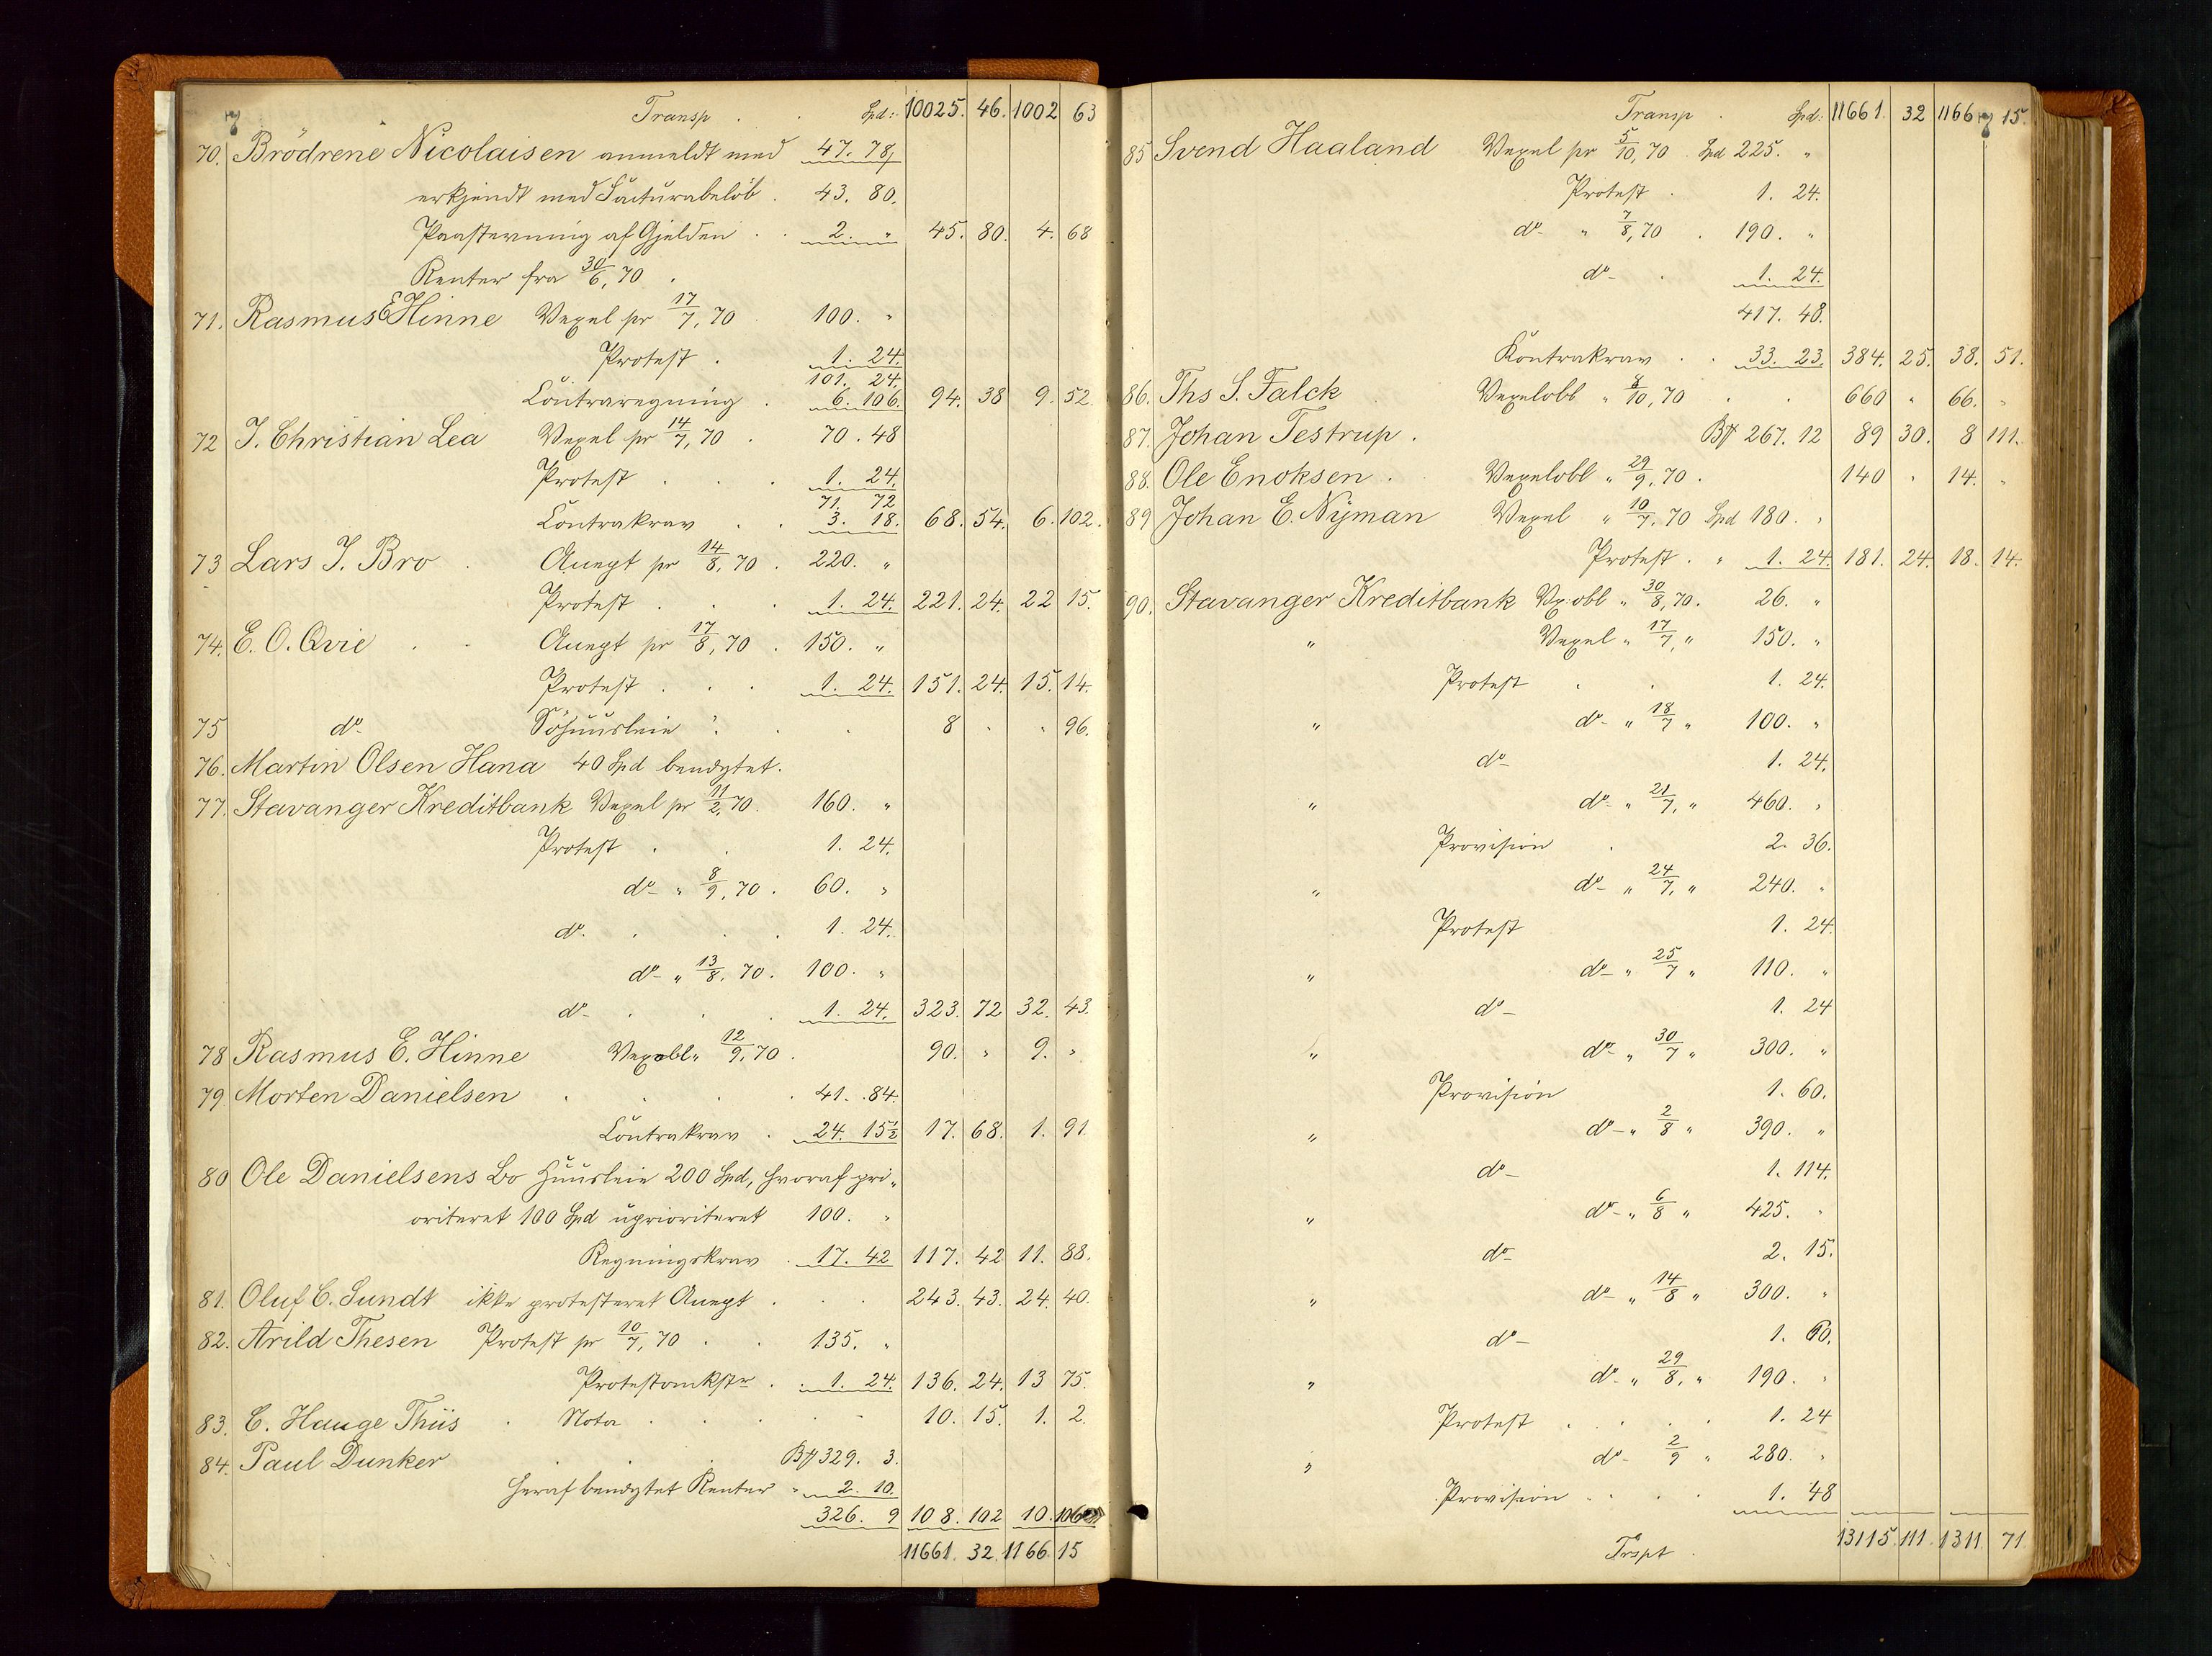 7
Transp . . Spd: 10025. 46. 1002 63
70. Brödrene Nicolaisen anmeldt med 47. 78
erkjendt med Facturabelöb . 43. 80.
Paastevning af Gjelden . . 2. " 45. 80. 4. 68
Renter fra 30/6, 70 .
71. Rasmus E Hinne Vexel pr 17/7, 70 100. "
Protest . 1. 24.
101. 24.
Contraregning . 6. 106. 94. 38 9. 52.
72 J. Christian Lea Vexel pr 14/7, 70 . 70. 48
Protest . . . 1. 24.
71. 72
Contrakrav . . 3. 18. 68. 54. 6. 102.
73 Lars J. Bro . Accept pr 14/8, 70 . 220. "
Protest . . . 1. 24. 221. 24. 22 15.
74. E. O. Qvie . . Accept pr 17/8, 70 . 150. "
Protest . . . 1. 24. 151. 24. 15. 14.
75 do. Söhuusleie . . . 8 . . 96.
76. Martin Olsen Hana 40 Spd benyttet.
77. Stavanger Kreditbank Vexel pr 11/2, 70. 160. "
Protest . . 1. 24.
do " 8/9, 70 . 60. "
do. . . . 1. 24.
do " 13/8, 70. 100. "
do . . . 1. 24. 323. 72 32. 43.
78 Rasmus E. Hinne Vexobl " 12/9, 70 . 90. " 9. "
79 Morten Danielsen . . . . 41. 84.
Contrakrav . 24. 15½ 17. 68. 1. 91
80 Ole Danielsens Bo Huusleie 200 Spd, hvoraf pri-
oriteret 100 Spd uprioriteret 100. "
Regningskrav . 17. 42 117. 42 11. 88.
81. Oluf C. Sundt ikke protesteret Accept . . . 243. 43. 24. 40.
82. Arild Thesen Protest pr 10/7, 70 . . 135. "
Protestomkstr . . 1. 24. 136. 24. 13 75.
83. C. Hauge Thiis . Nota . . . . . 10. 15. 1. 2.
84. Paul Dunker . . . 329. 3.
heraf benyttet Renter " 2. 10.
326. 9 108. 102 10. 106
11661. 32. 1166. 15
7
Transp . Spd: 11661. 32 1166 15.
85 Svend Haaland Vexel pr 5/10, 70 . Spd 225. "
Protest . 1. 24.
do " 7/8, 70 . 190. "
do . 1. 24.
417. 48.
Kontrakrav . . 33. 23. 384. 25. 38. 51.
86. Ths S. Falck Vexelobl " 8/10, 70 . . 660 " 66. "
87. Johan Testrup . 267. 12 89 30. 8 111.
88. Ole Enoksen . Vexelobl " 29/9, 70 . 140 " 14. "
89 Johan E. Nyman Vexel " 10/7, 70 Spd 180. "
Protest . " 1. 24. 181. 24. 18. 14.
90. Stavanger Kreditbank Vx.obl " 30/8, 70. 26. "
" Vexel " 17/7, " 150. "
Protest . . 1. 24.
" do " 18/7 " 100. "
do 1. 24.
" do " 21/7, " 460. "
Provision . 2. 36.
" do " 24/7, " 240. "
Protest 1. 24.
" do " 25/7 " 110. "
do 1. 24
" do " 30/7 " 300. "
Provision 1. 60.
" do " 2/8 " 390. "
do 1. 114.
" do " 6/8 " 425. "
do 2. 15.
" do " 14/8 " 300. "
do 1. 60.
" do " 29/8, " 190. "
Protest . . . . 1. 24
" do 2/9 " 280. "
Provision . . . . 1. 48
Trspt . 13115. 111. 1311. 71.